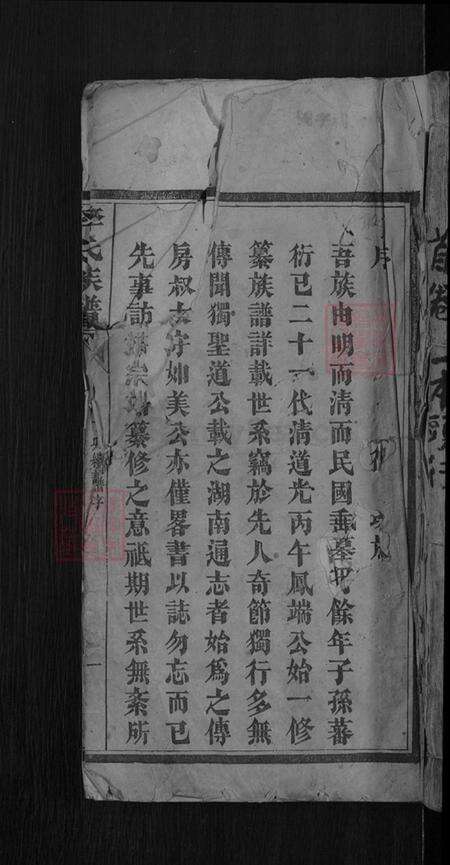 首卷
序
吾族由明而清而民國垂基百餘年子孫蕃
衍已二十一代清道光丙午鳳端公始一修
纂族譜詳載世系竊於先人奇節獨行多無
傳聞獨聖道公載之湖南通志者始爲之傳
房叔大字如美公亦僅畧書以誌勿忘而已
先事訪 纂修之意祗期世系無紊所
氏族譜
序
一